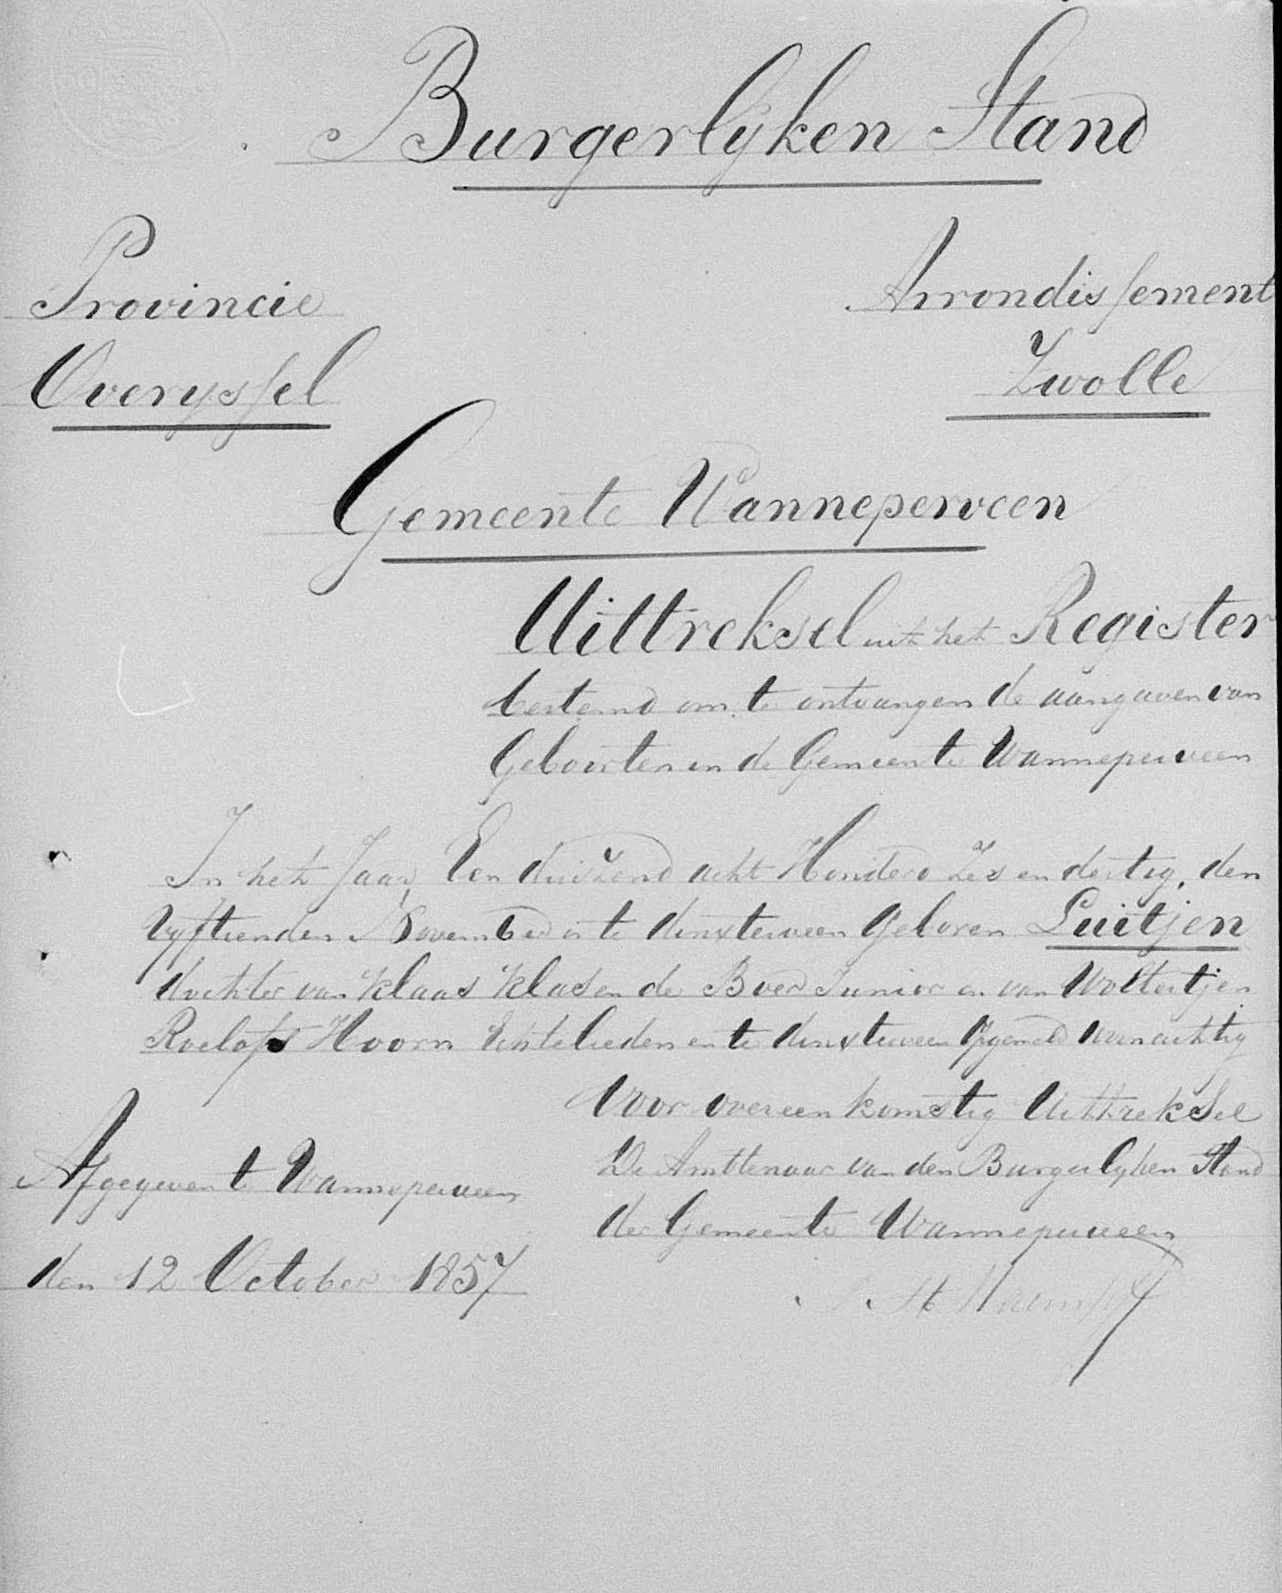 Burgerlijken Stand
Provincie
Arrondissement
Overyssel
Zwolle
Gemeente Wanneperveen
Uittreksel uit het Register
bestemd om te ontvangen de aangaven van
Geboorten in de Gemeente Wanneperveen
In het Jaar Een duizend acht Honderd Zes en dertig, den
Vyftienden November is te dinxterveen Geboren Luitjen
dochter van Klaas Klasen de Boer Junior en van Woltertjen
Roelofs Hoorn Echtelieden en te dinxterveen opgemeld woonachtig
Voor overeenkomstig Uittreksel
Afgegeven te Wanneperveen
De Amttenaar van den Burgerlyken Stand
der Gemeente Wanneperveen
den 12 October 1857